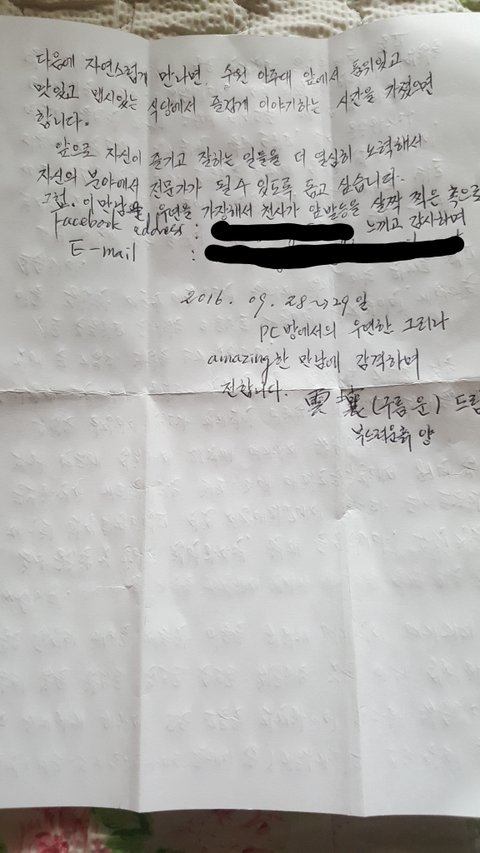 다음에 자연스럽게 만나면, 수원 아주대 앞에서 분위있고
맛있고 맵시있는 식당에서 즐겁게 이야기하는 시간을 가졌으면
합니다.
앞으로 자신이 즐기고 잘하는 일들을 더 열심히 노력해서
자신의 분야에서 전문가가 될 수 있도록 돕고 싶습니다.
그럼, 이 만남을 우연을 가장해서 천사가 앞발등을 살짝 찍은 혹으로
Facebook address : 느끼고 감사하며
E-mail :
2016. 09. 28→29일
PC방에서의 우연한 그리고
amazing한 만남에 감격하며
전합니다.
雲壤 (구름 운) 드림
부드러운흙 양